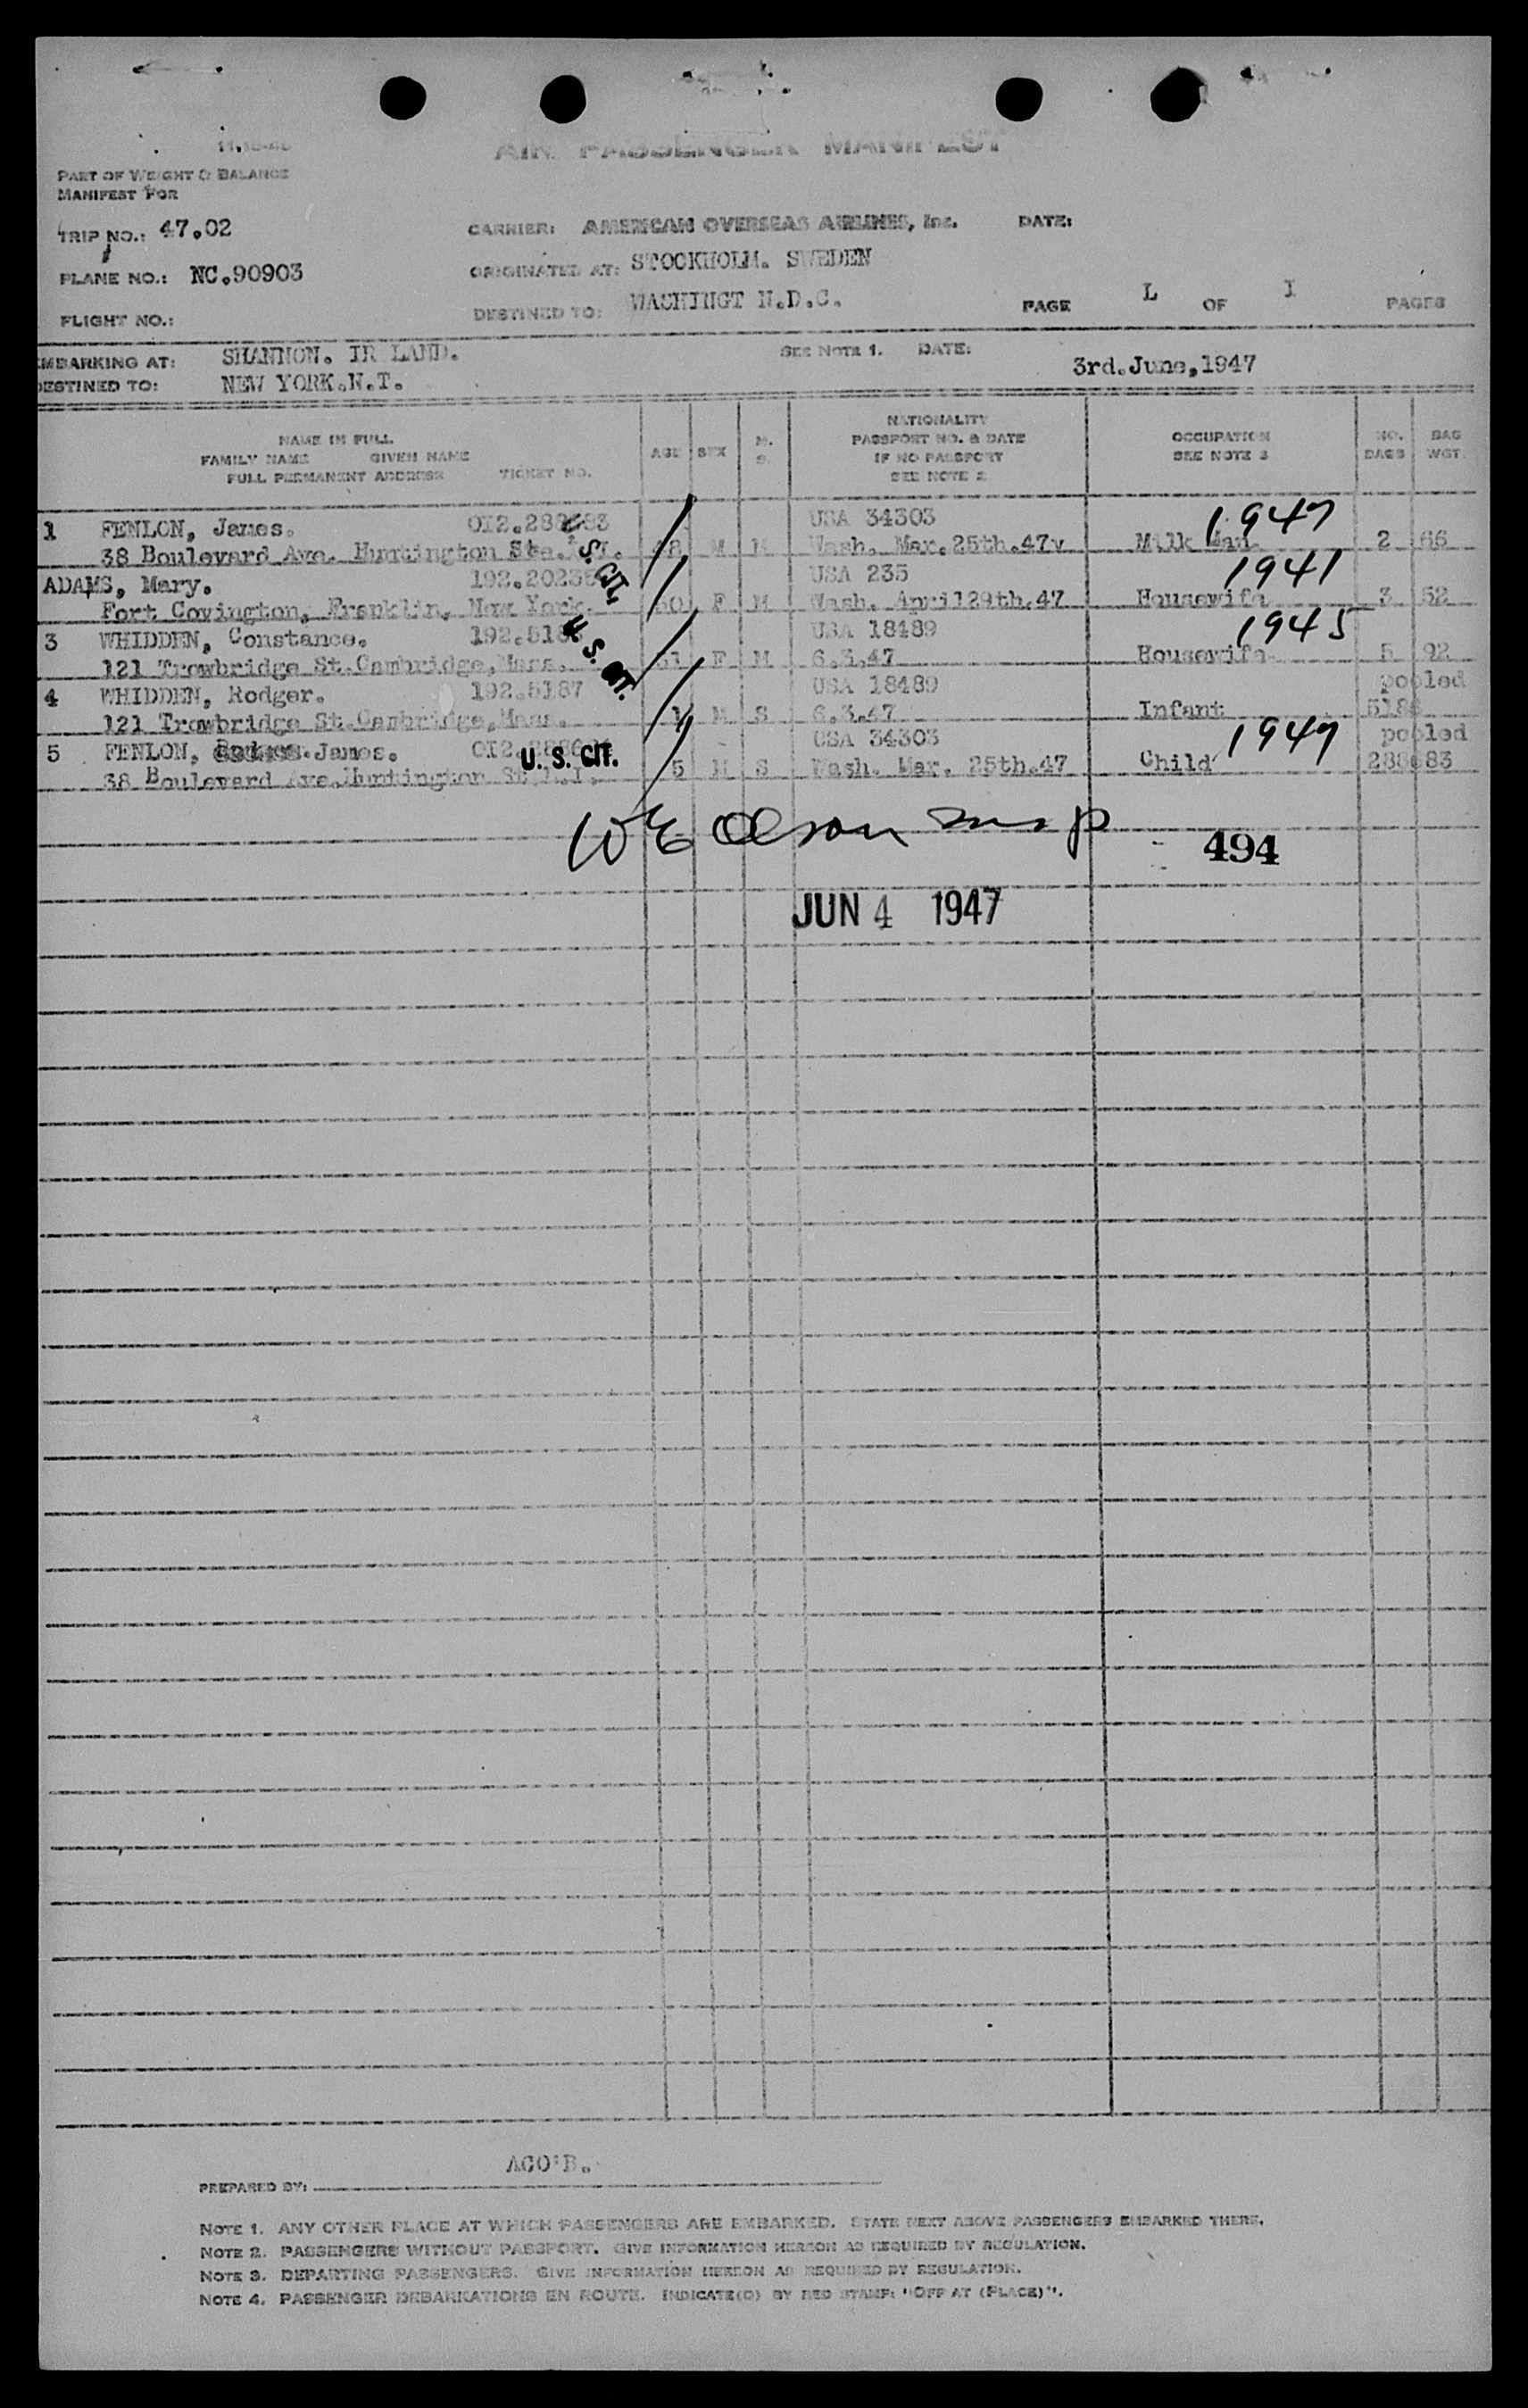 AIR PASSENGER MANIFEST
PART OF WEIGHT & BALANCE
MANIFEST FOR
TRIP NO.: 47.02 CARRIER: AMERICAN OVERSEAS AIRLINES, Inc. DATE:
PLANE NO.: NC.90903 ORIGINATED AT: STOCKHOLM. SWEDEN
FLIGHT NO.: DESTINED TO: WASHINGT N.D.C. PAGE L OF I PAGES
EMBARKING AT: SHANNON. IR LAND. SEE NOTE 1. DATE: 3rd.June,1947
DESTINED TO: NEW YORK.N.T.
NAME IN FULL
FAMILY NAME GIVEN NAME
FULL PERMANENT ADDRESS TICKET NO.
AGE SEX M. S.
NATIONALITY
PASSPORT NO. & DATE
IF NO PASSPORT
SEE NOTE 2
OCCUPATION
SEE NOTE 3
NO. BAGS
BAG WGT.
1 FENLON, James. USA 34303 1947
38 Boulevard Ave. Huntington M M Wash. Mar.25th.47v Milk Man. 2 66
ADAMS, Mary. USA 235 1941
Fort Covington, Franklin, New York. 60 F M Wash. April29th.47 Housewife 3 52
3 WHIDDEN, Constance. USA 18489 1945
121 Trowbridge St.Cambridge,Mass. 31 F M 6.3.47 Housewife 5 92
4 WHIDDEN, Rodger. 192.5187 USA 18489 pooled
121 Trowbridge St.Cambridge,Mass. 1 M S 6.3.47 Infant
5 FENLON, James. USA 34303 1947 pooled
38 Boulevard Ave.Huntington 5 M S Wash. Mar. 25th.47 Child 288683
U. S. CIT.
U. S. CIT.
U. S. CIT.
W E Olson
494
JUN 4 1947
ACO'B.
PREPARED BY:
NOTE 1. ANY OTHER PLACE AT WHICH PASSENGERS ARE EMBARKED. STATE NEXT ABOVE PASSENGERS EMBARKED THERE.
NOTE 2. PASSENGERS WITHOUT PASSPORT. GIVE INFORMATION HEREON AS REQUIRED BY REGULATION.
NOTE 3. DEPARTING PASSENGERS. GIVE INFORMATION HEREON AS REQUIRED BY REGULATION.
NOTE 4. PASSENGER DEBARKATIONS EN ROUTE. INDICATE(D) BY RED STAMP: "OFF AT (PLACE)".